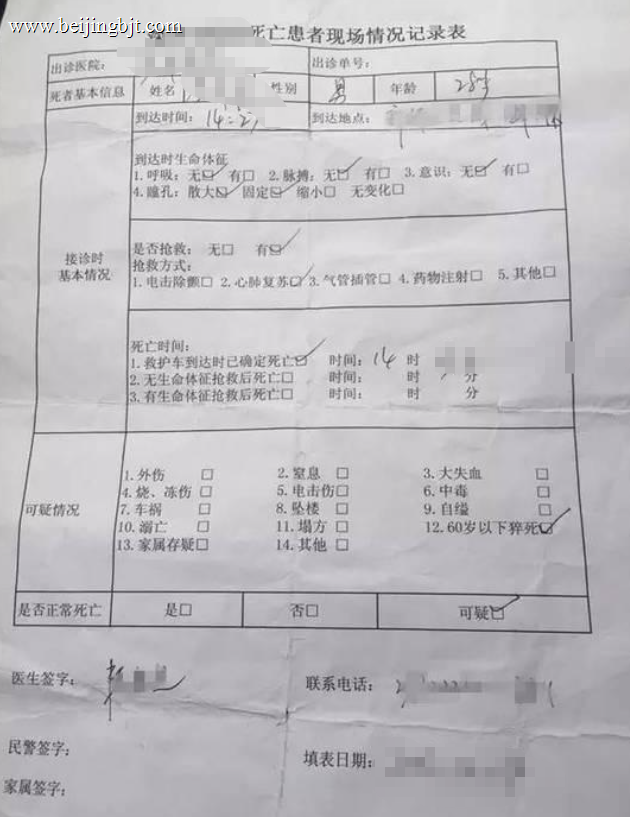 www.beijingbjt.com
死亡患者现场情况记录表
出诊医院: 出诊单号:
死者基本信息 姓名 性别 男 年龄 28岁
到达时间: 14: 到达地点:
接诊时
基本情况
到达时生命体征
1.呼吸: 无☑ 有□ 2.脉搏: 无☑ 有□ 3.意识: 无☑ 有□
4.瞳孔: 散大☑ 固定☑ 缩小□ 无变化□
是否抢救: 无□ 有☑
抢救方式:
1.电击除颤□ 2.心肺复苏☑ 3.气管插管□ 4.药物注射□ 5.其他□
死亡时间:
1.救护车到达时已确定死亡☑ 时间: 14 时
2.无生命体征抢救后死亡□ 时间: 时 分
3.有生命体征抢救后死亡□ 时间: 时 分
可疑情况
1.外伤 □ 2.窒息 □ 3.大失血 □
4.烧、冻伤 □ 5.电击伤□ 6.中毒 □
7.车祸 □ 8.坠楼 □ 9.自缢 □
10.溺亡 □ 11.塌方 □ 12.60岁以下猝死☑
13.家属存疑□ 14.其他 □
是否正常死亡 是□ 否□ 可疑☑
医生签字: 联系电话:
民警签字: 填表日期:
家属签字: